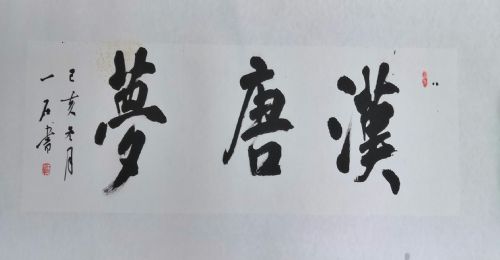 漢唐夢
己亥冬月
一石書